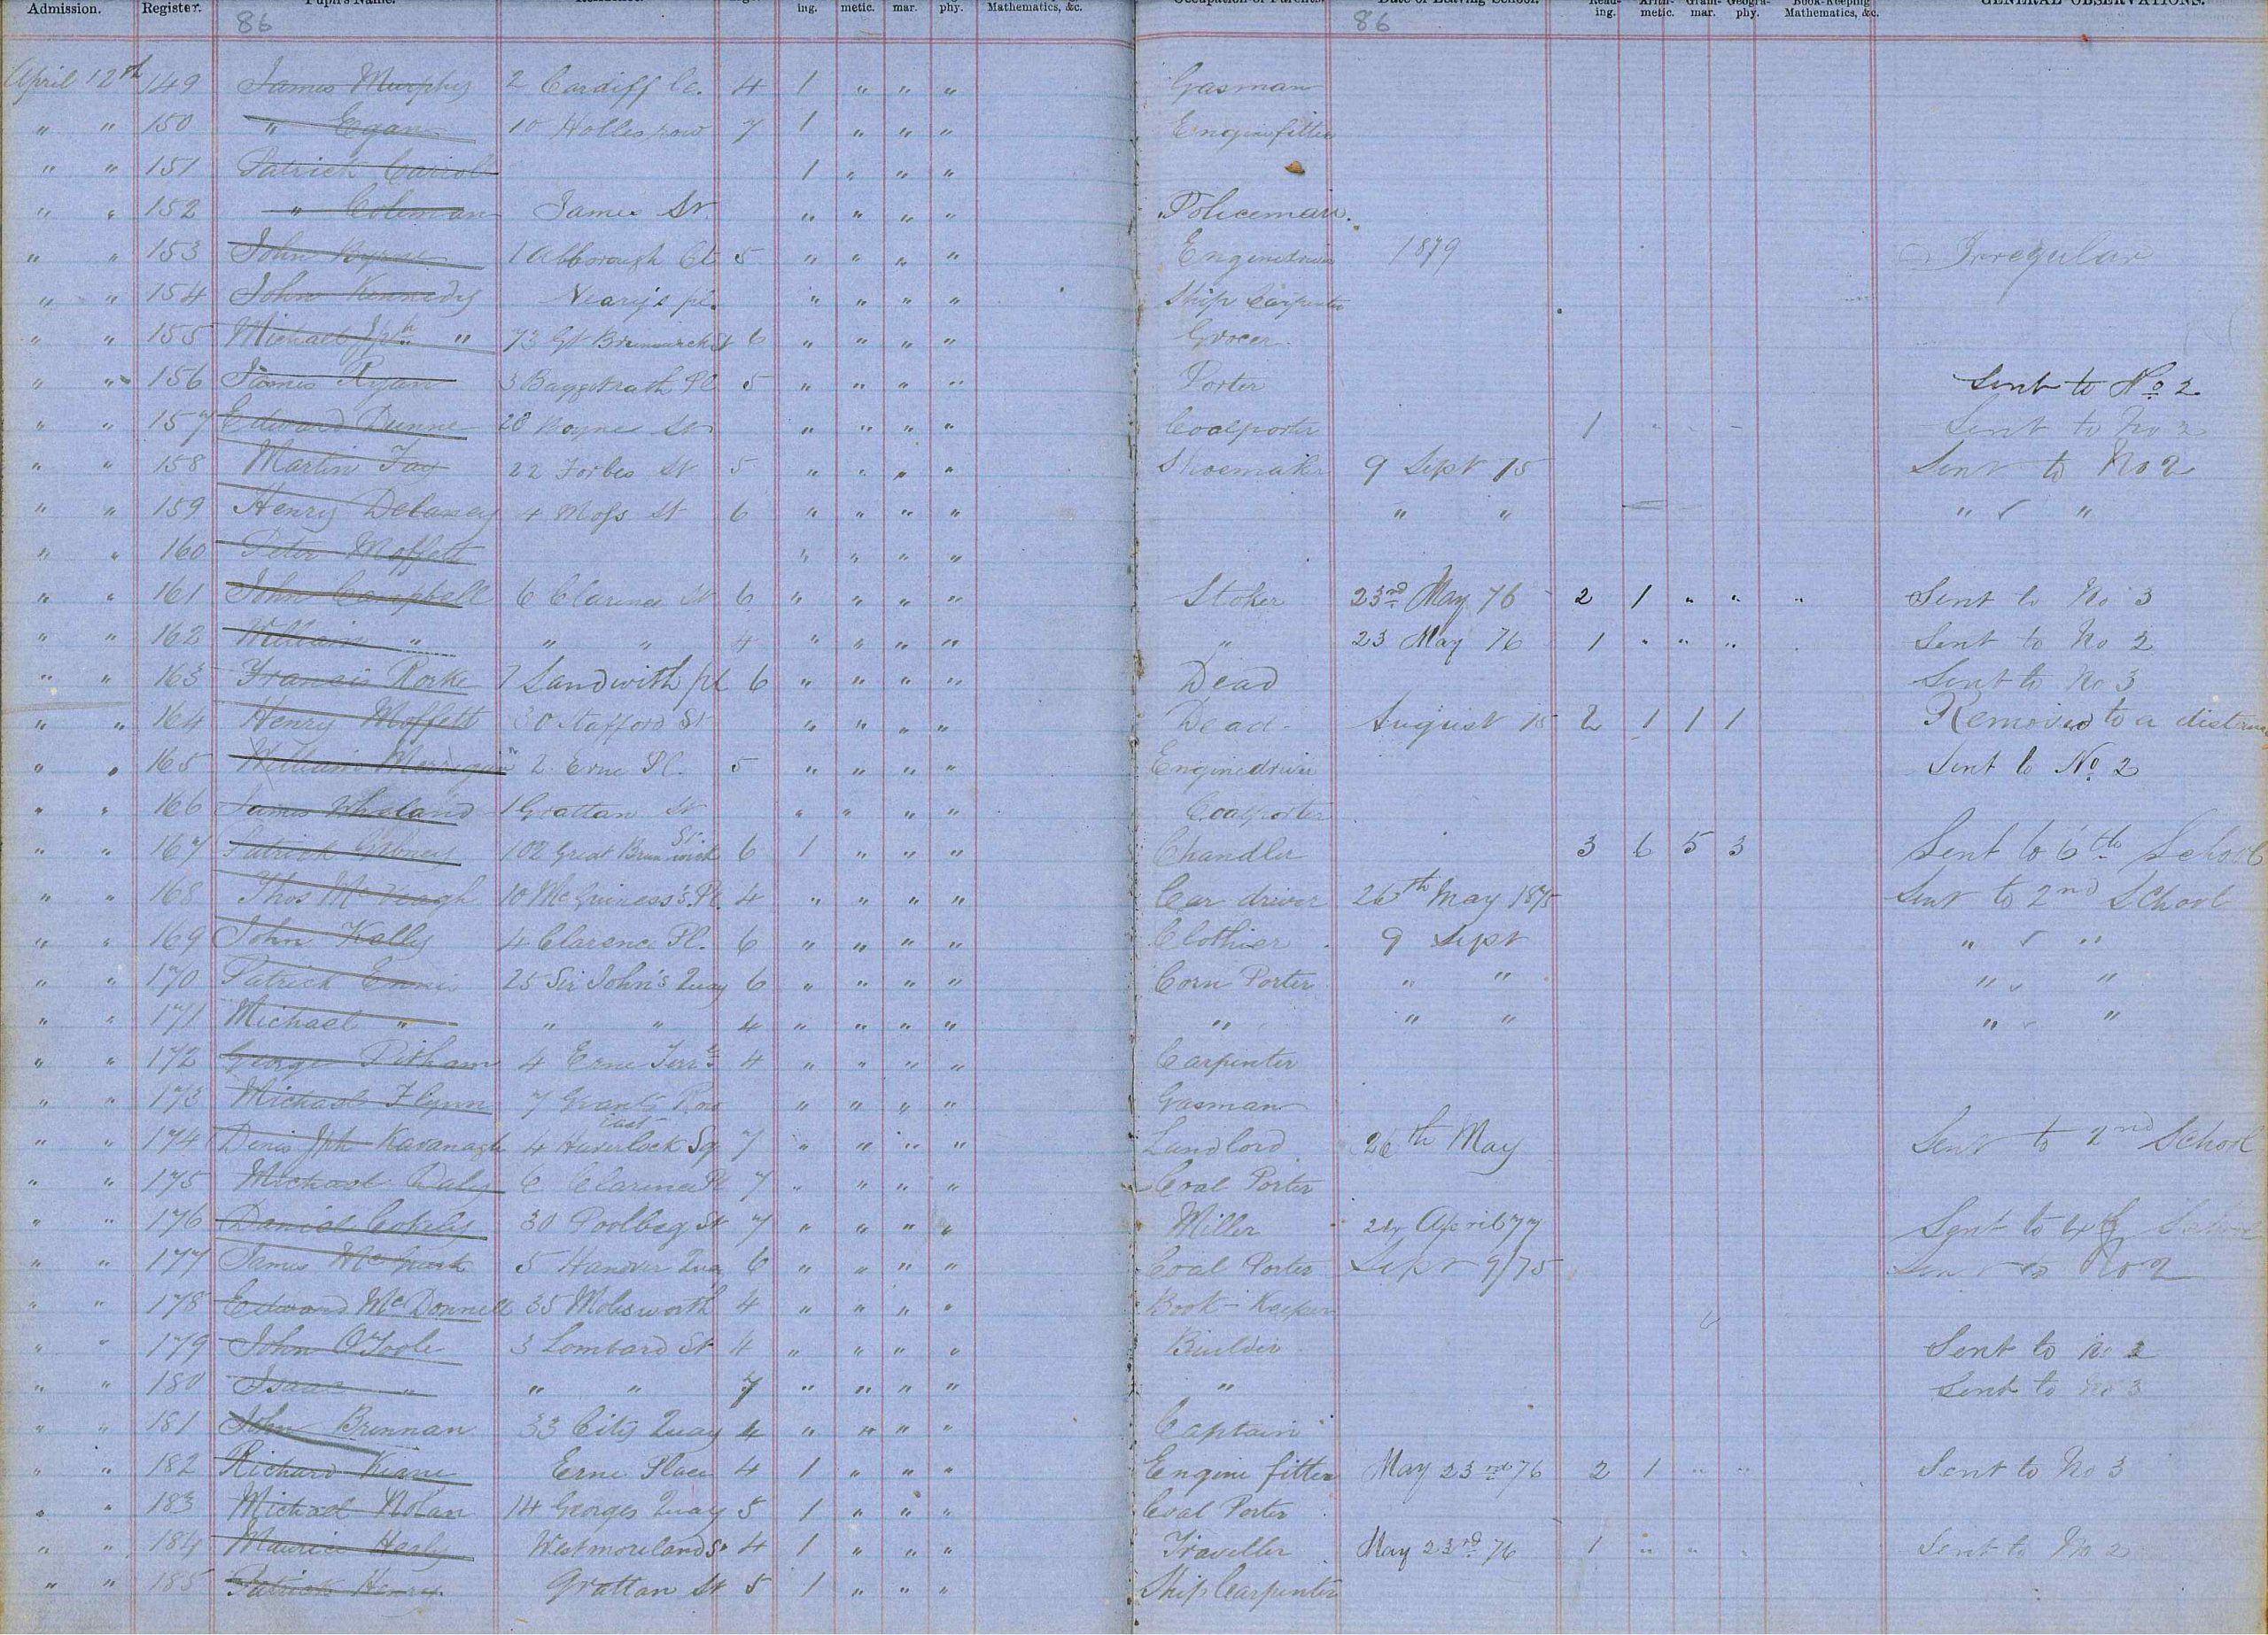 Admission. Register. Pupil's Name. ing. metic. mar. phy. Mathematics, &c. Occupation of Parents. Date of Leaving School. Read-ing. Arith-metic. Gram-mar. Geogra-phy. Book-Keeping Mathematics, &c. GENERAL OBSERVATIONS.
86 86
April 12th 149 James Murphy 2 Cardiff 4 1 " " " Gasman
" " 150 " Egan 10 Holles row 7 1 " " " Enginefitter
" " 151 Patrick Carroll 1 " " "
" " 152 " Coleman James St. " " " " Policeman.
" " 153 John Byrne 1 Alborough Ct 5 " " " " Enginedriver 1879 Irregular
" " 154 John Kennedy Neary's pl. " " " " Ship Carpenter
" " 155 Michael Jph " 73 Gt Brunswick St 6 " " " " Grocer
" " 156 James Ryan 3 Baggotrath Pl 5 " " " " Porter Sent to No 2
" " 157 Edward Dunne 28 Boyne St " " " " Coalporter 1 " - - Sent to No 2
" " 158 Martin Fay 22 Forbes St 5 " " " " Shoemaker 9 Sept 75 Sent to No 2
" " 159 Henry Delaney 4 Moss St 6 " " " " " " " "
" " 160 Peter Moffett " " " "
" " 161 John Campbell 6 Clarence St 6 " " " " Stoker 23rd May 76 2 1 " " " Sent to No 3
" " 162 William " " " 4 " " " " " 23 May 76 1 " " " Sent to No 2
" " 163 Francis Rorke 7 Sandwith pl 6 " " " " Dead Sent to No 3
" " 164 Henry Moffett 30 Stafford St " " " " Dead August 75 2 1 1 1 Removed to a
" " 165 William Merrigan 2 Erne Pl. 5 " " " " Enginedriver Sent to No 2
" " 166 James Wheland 1 Grattan St " " " " Coalporter
" " 167 Patrick Gibney 102 Great Brunswick St. 6 1 " " " Chandler 3 6 5 3 Sent to 6th School
" " 168 Thos McVeagh 10 McGuiness's Pl. 4 " " " " Car driver 26th May 1875 Sent to 2nd School
" " 169 John Kelly 4 Clarence Pl. 6 " " " " Clothier 9 Sept " "
" " 170 Patrick Ennis 25 Sir John's Quay 6 " " " " Corn Porter " " " "
" " 171 Michael " " " 4 " " " " " " " " "
" " 172 George Pitham 4 Erne Terre 4 " " " " Carpenter
" " 173 Michael Flynn 7 Grants Row " " " " Gasman
" " 174 Denis Jph Kavanagh 4 Haverlock Sq East 7 " " " " Landlord 26th May Sent to 2nd School
" " 175 Michael Daly 6 Clarence Pl 7 " " " " Coal Porter
" " 176 Daniel Cokely 30 Poolbeg St 7 " " " " Miller 24 April 77 Sent to 4th School
" " 177 James McGurk 5 Hanover Quay 6 " " " " Coal Porter Sept 9/75 Sent to No 2
" " 178 Edward McDonnell 35 Molesworth 4 " " " " Book-Keeper
" " 179 John O'Toole 3 Lombard St 4 " " " " Builder Sent to No 2
" " 180 Isaac " " " 7 " " " " " Sent to No 3
" " 181 John Brennan 33 City Quay 4 " " " " Captain
" " 182 Richard Keane Erne Place 4 1 " " " Engine fitter May 23rd 76 2 1 " " Sent to No 3
" " 183 Michael Nolan 14 Georges Quay 5 1 " " " Coal Porter
" " 184 Maurice Healy Westmoreland St 4 1 " " " Traveller May 23rd 76 1 " " " Sent to No 2
" " 185 Patrick Henry Grattan St 5 1 " " " Ship Carpenter